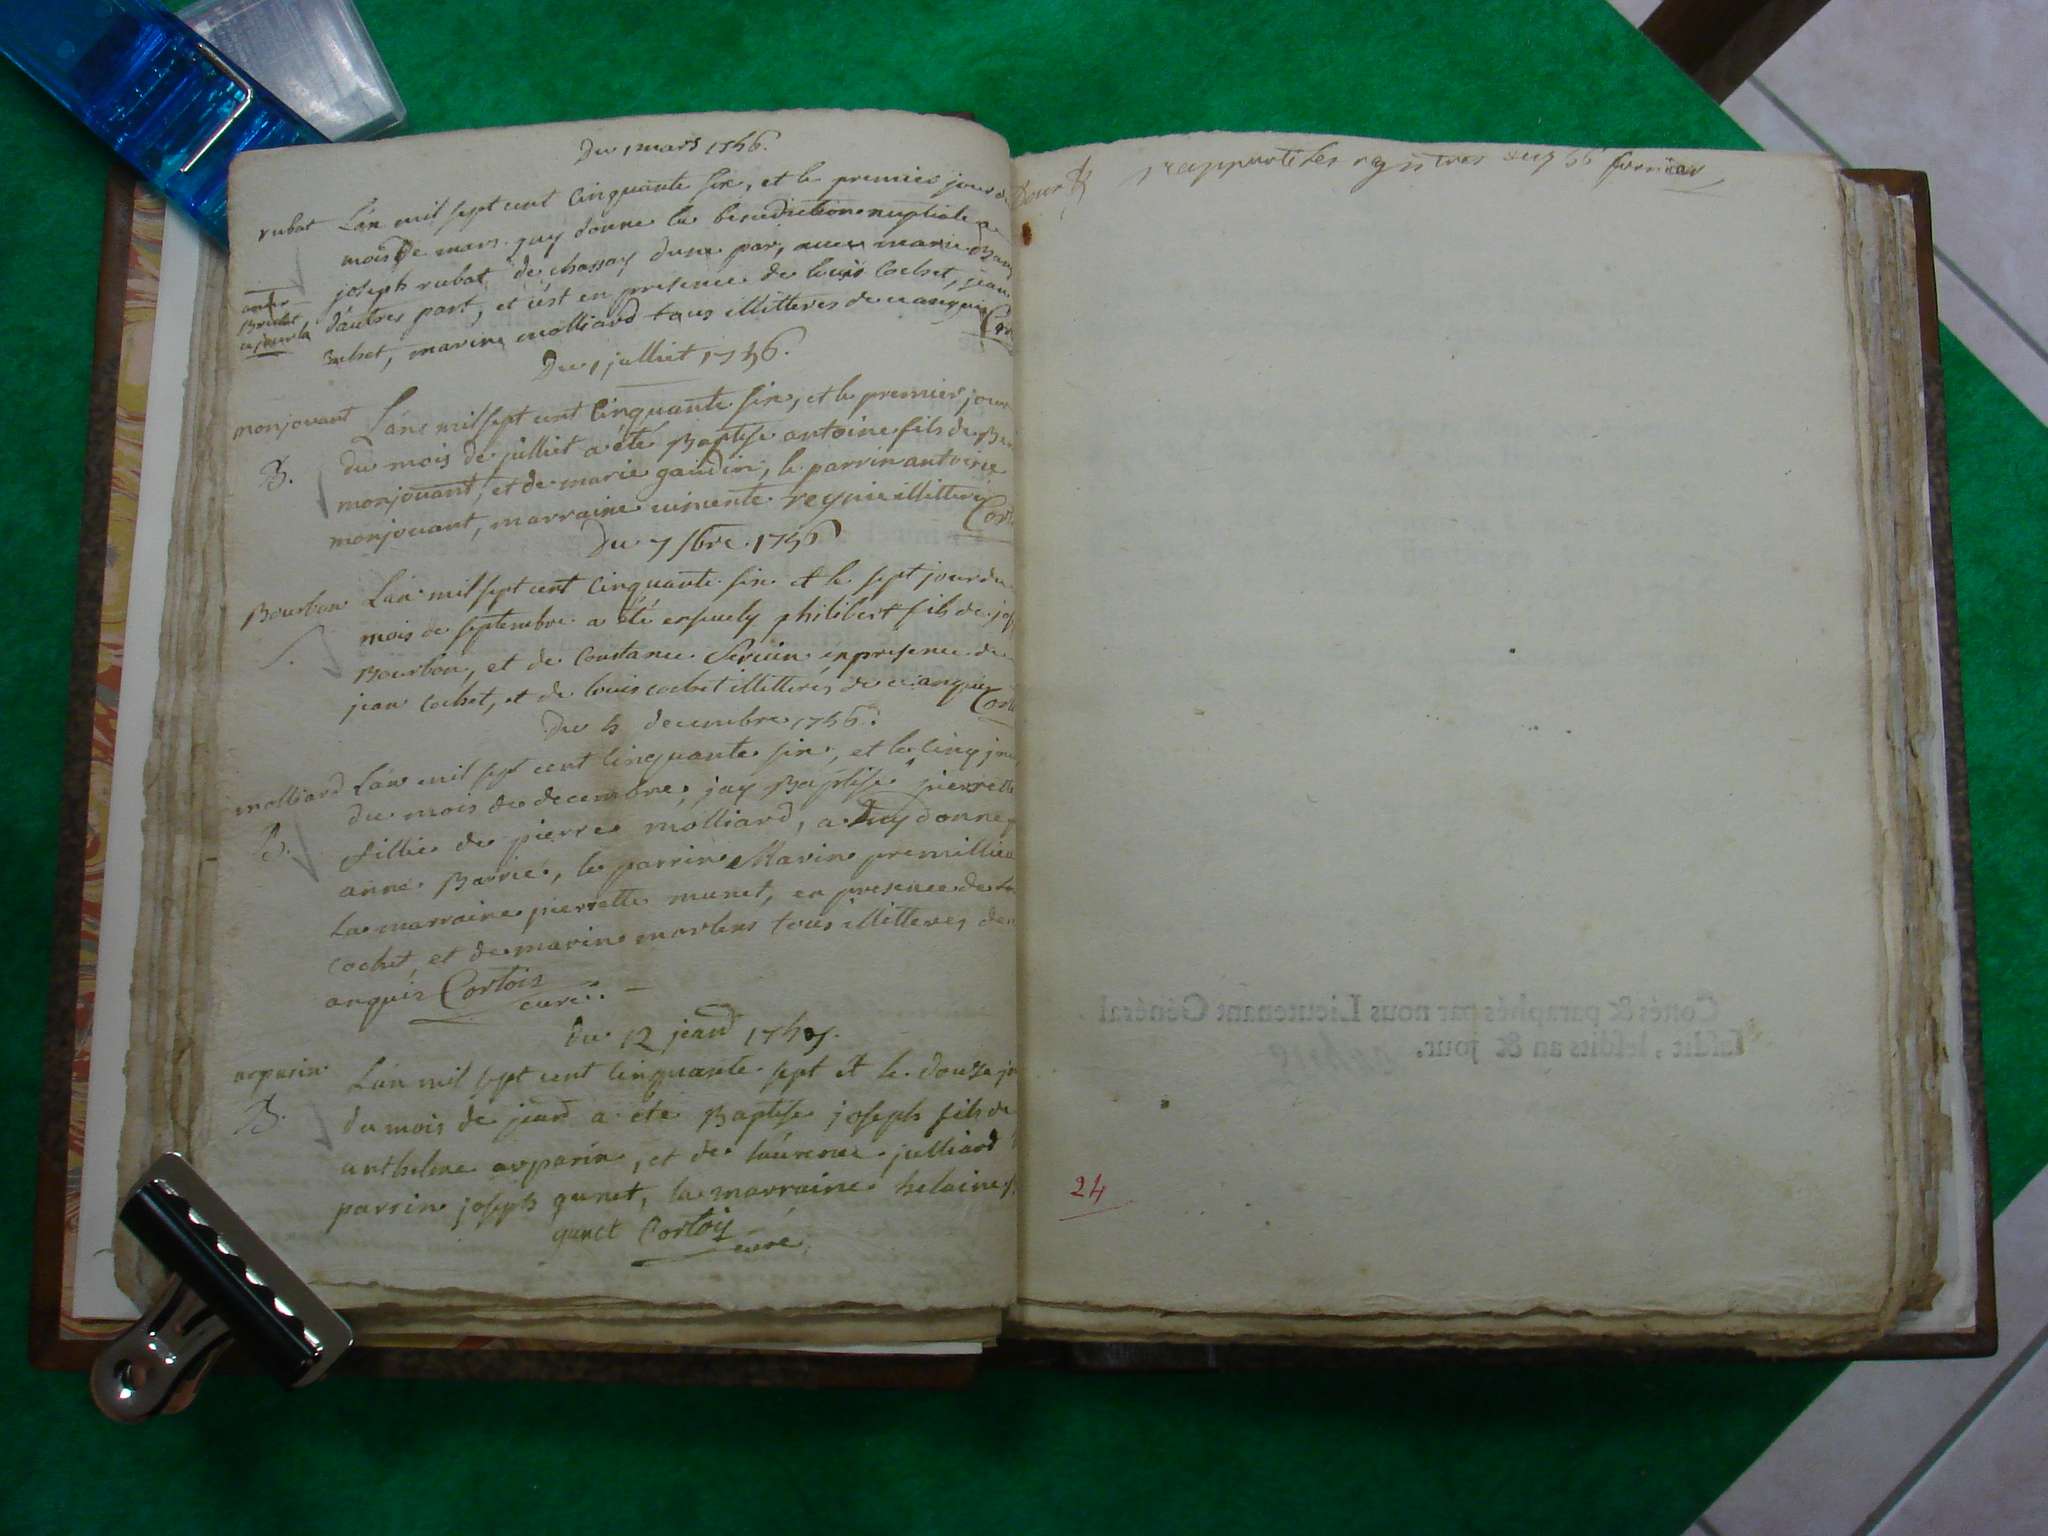 Du 1 mars 1756.
rubat L'an mil sept cent cinquante six, et le premier jour d
mois de mars. jay donne la benediction nuptiale a
joseph rubat de chassay dune par, avec marie
d'autres part, et c'est en presence de louis Cochet, jean
Cochet, marin molliard tous illitteres de cranquis Cor
Du 1 julliet 1756.
monjouant L'ane mil sept cent Cinquante six, et le premier jour
B. du mois de julliet a été Baptise antoine fils de
monjouant, et de marie gaudin, le parrin antoine
monjouant, marraine reynie illitteré Corto
Du 7 7bre 1756
Bourbon L'an mil sept cent cinquante six et le sept jour du
S. mois de septembre a été ensuely philibert fils de jos
Bourbon, et de Constance en presence de
jean Cochet, et de louis cochet illitterés de cranquis Corto
Du 5 decembre 1756.
molliard L'an mil sept cent Cinquante six, et le Cinq jou
B. du mois de decembre, jay Baptise pierrette
fillie de pierre molliard, a luy donne
anne Barrie, le parrin Marin premillieu
La marraine pierrette munet, en presence de
cochet, et de marin morlens tous illitteres de
anquis Cortois
curé
Du 12 jeanv 1757.
arparin L'an mil sept cent cinquante sept et le douze jo
B. du mois de jeanv a été Baptise joseph fils de
anthelme arparin, et de laurence julliard
parrin joseph gunet, la marraine helaine
gunet Cortois
curé
rapporté les registres
Cottés & paraphés par nous Lieutenant Général
susdit, lesdits an & jour.
24